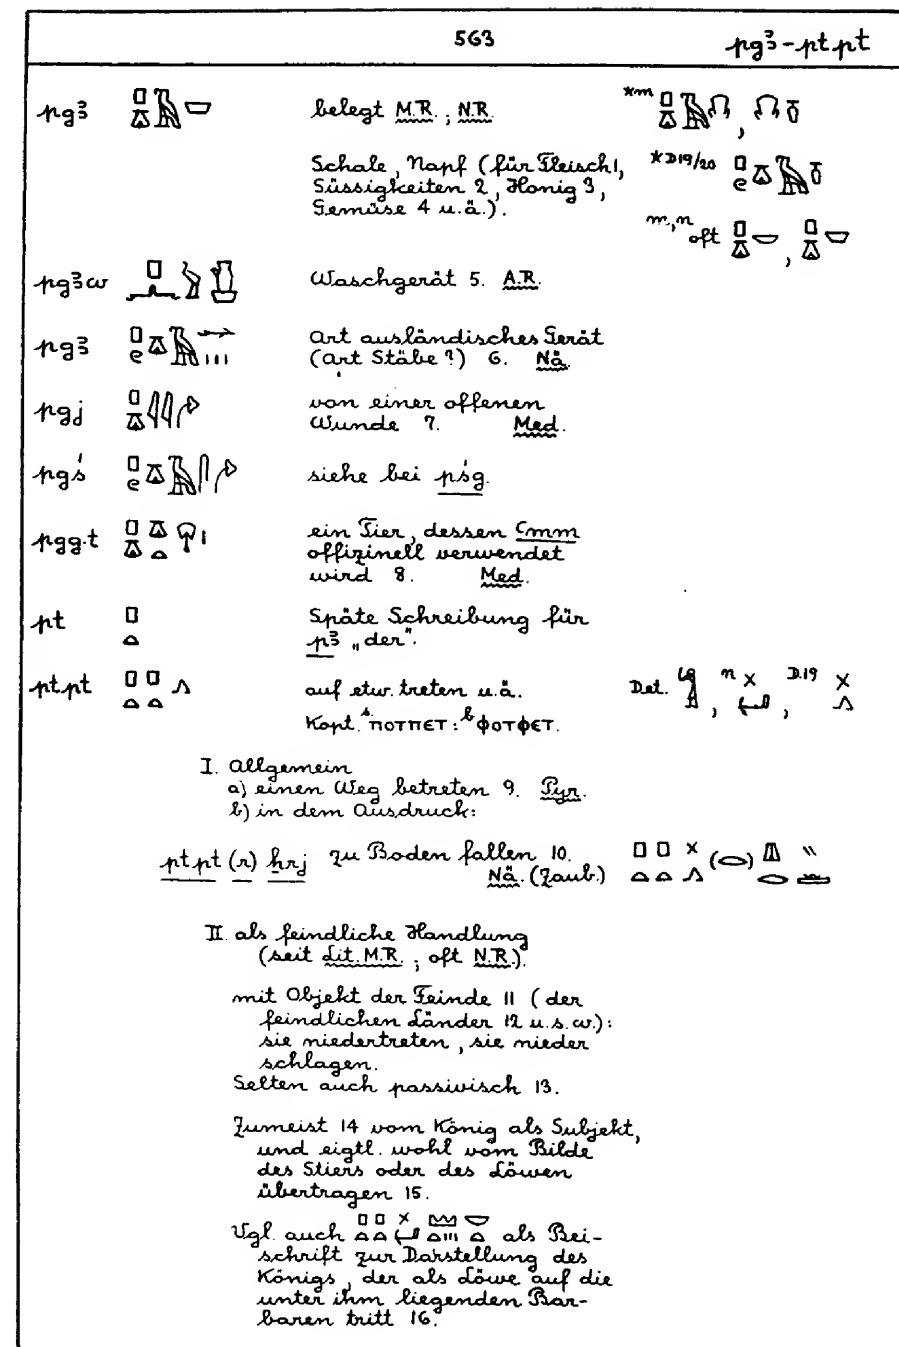 563 pgꜣ - ptpt
pgꜣ 𓊪𓎼𓄿𓎟 belegt M.R.; N.R. *m
Schale, Napf (für Fleisch 1, *D19/20
Süssigkeiten 2, Honig 3,
Gemüse 4 u.ä.). m, n oft
pgꜣw Waschgerät 5. A.R.
pgꜣ Art ausländisches Gerät
(Art Stäbe?) 6. Nä.
pgj von einer offenen
Wunde 7. Med.
pgś siehe bei pśg.
pgg.t ein Tier, dessen Ꜥmm
offizinell verwendet
wird 8. Med.
pt 𓊪𓏏 Späte Schreibung für
pꜣ „der".
ptpt 𓊪𓏏𓊪𓏏𓂻 auf etw. treten u.ä. Det. Lg , n , D.19
Kopt. s. ⲡⲟⲧⲡⲉⲧ : b ⲫⲟⲧⲫⲉⲧ.
I. Allgemein
a) einen Weg betreten 9. Pyr.
b) in dem Ausdruck:
ptpt (r) ẖrj zu Boden fallen 10.
Nä. (Zaub.)
II. als feindliche Handlung
(seit Lit. M.R.; oft N.R.).
mit Objekt der Feinde 11 (der
feindlichen Länder 12 u.s.w.):
sie niedertreten, sie nieder
schlagen.
Selten auch passivisch 13.
Zumeist 14 vom König als Subjekt,
und eigtl. wohl vom Bilde
des Stiers oder des Löwen
übertragen 15.
Vgl. auch als Bei-
schrift zur Darstellung des
Königs, der als Löwe auf die
unter ihm liegenden Bar-
baren tritt 16.